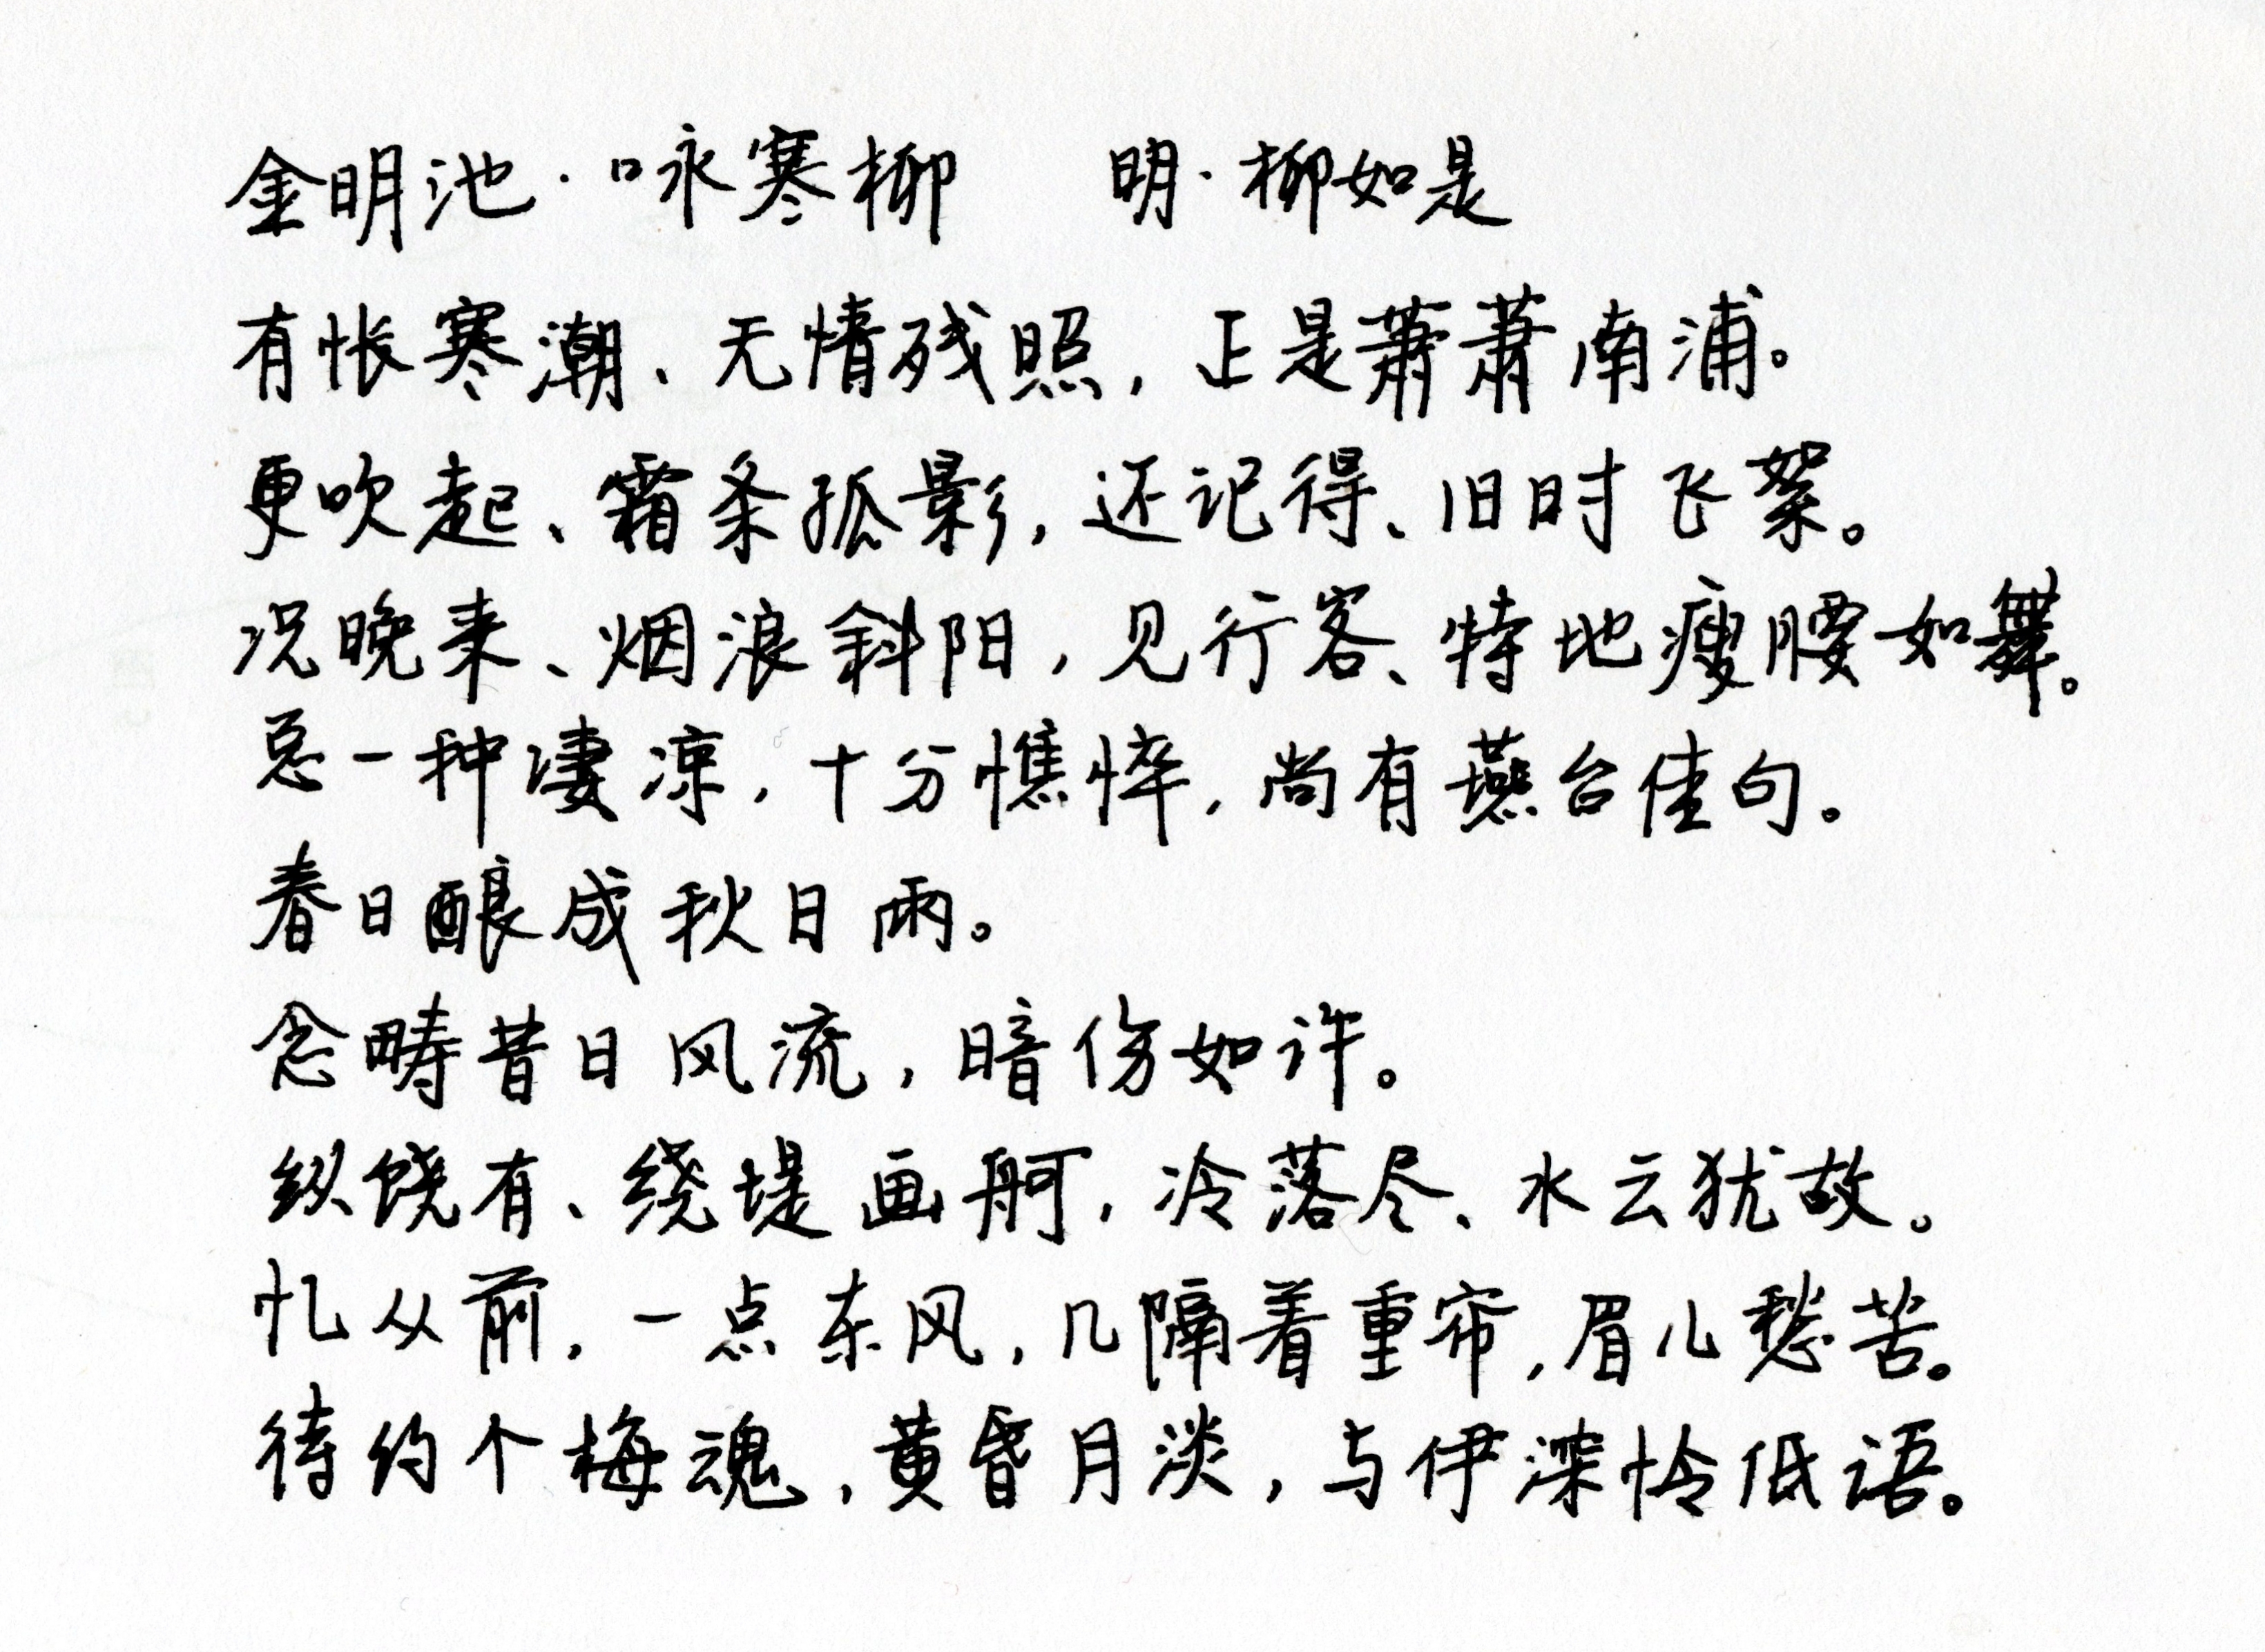 金明池·咏寒柳 明·柳如是
有怅寒潮、无情残照，正是萧萧南浦。
更吹起、霜条孤影，还记得、旧时飞絮。
况晚来、烟浪斜阳，见行客、特地瘦腰如舞。
总一种凄凉，十分憔悴，尚有燕台佳句。
春日酿成秋日雨。
念畴昔日风流，暗伤如许。
纵饶有、绕堤画舸，冷落尽、水云犹故。
忆从前，一点东风，几隔着重帘，眉儿愁苦。
待约个梅魂，黄昏月淡，与伊深怜低语。